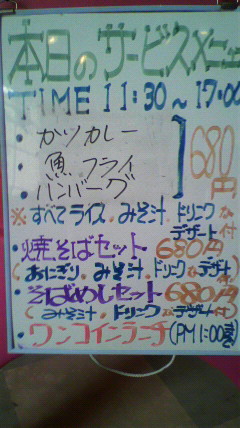 本日のサービスメニュー
TIME 11:30～17:00
・カツカレー
・魚フライ
・ハンバーグ
680円
※すべてライス.みそ汁.ドリンク
デザート付
・焼そばセット 680円
(おにぎり.みそ汁.ドリンク デザート付)
・そばめしセット 680円
(みそ汁.ドリンク デザート付)
・ワンコインランチ(PM1:00まで)